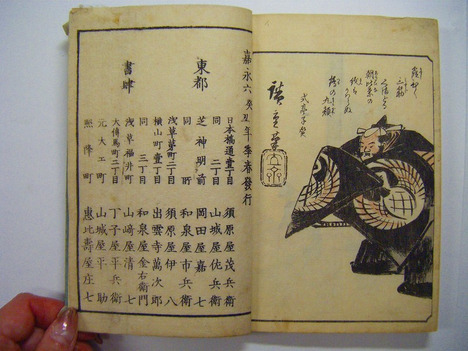 廣重筆
嘉永六癸丑年季春發行
東都
書肆
日本橋通壹丁目 須原屋茂兵衛
同 二丁目 山城屋佐兵衛
芝神明前 岡田屋嘉七
同 所 和泉屋市兵衛
浅草茅町二丁目 須原屋伊八
横山町壹丁目 出雲寺萬次郎
同 三丁目 和泉屋金右衛門
浅草福井町 山﨑屋清七
大傳馬町二丁目 丁子屋平兵衛
元大工町 山城屋平助
照降町 惠比壽屋庄七